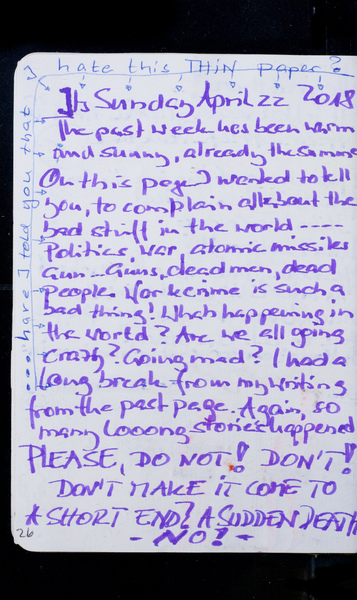 ... have I told you that I
hate this THIN paper?
It's Sunday April 22 2018
The past week has been warm
and sunny, already the summe
On this page I wanted to tell
you, to complain all about the
bad stuff in the world ----
Politics, war, atomic missiles
Gun -- Guns, dead men, dead
People. War crime is such a
bad thing! What happening in
the world? Are we all going
crazy? Going mad? I had a
long break from my writing
from the past page. Again, so
many Looong stories happened
PLEASE, DO NOT! DON'T!
DON'T MAKE IT COME TO
A SHORT END! A SUDDEN DEATH
- NO! -
26